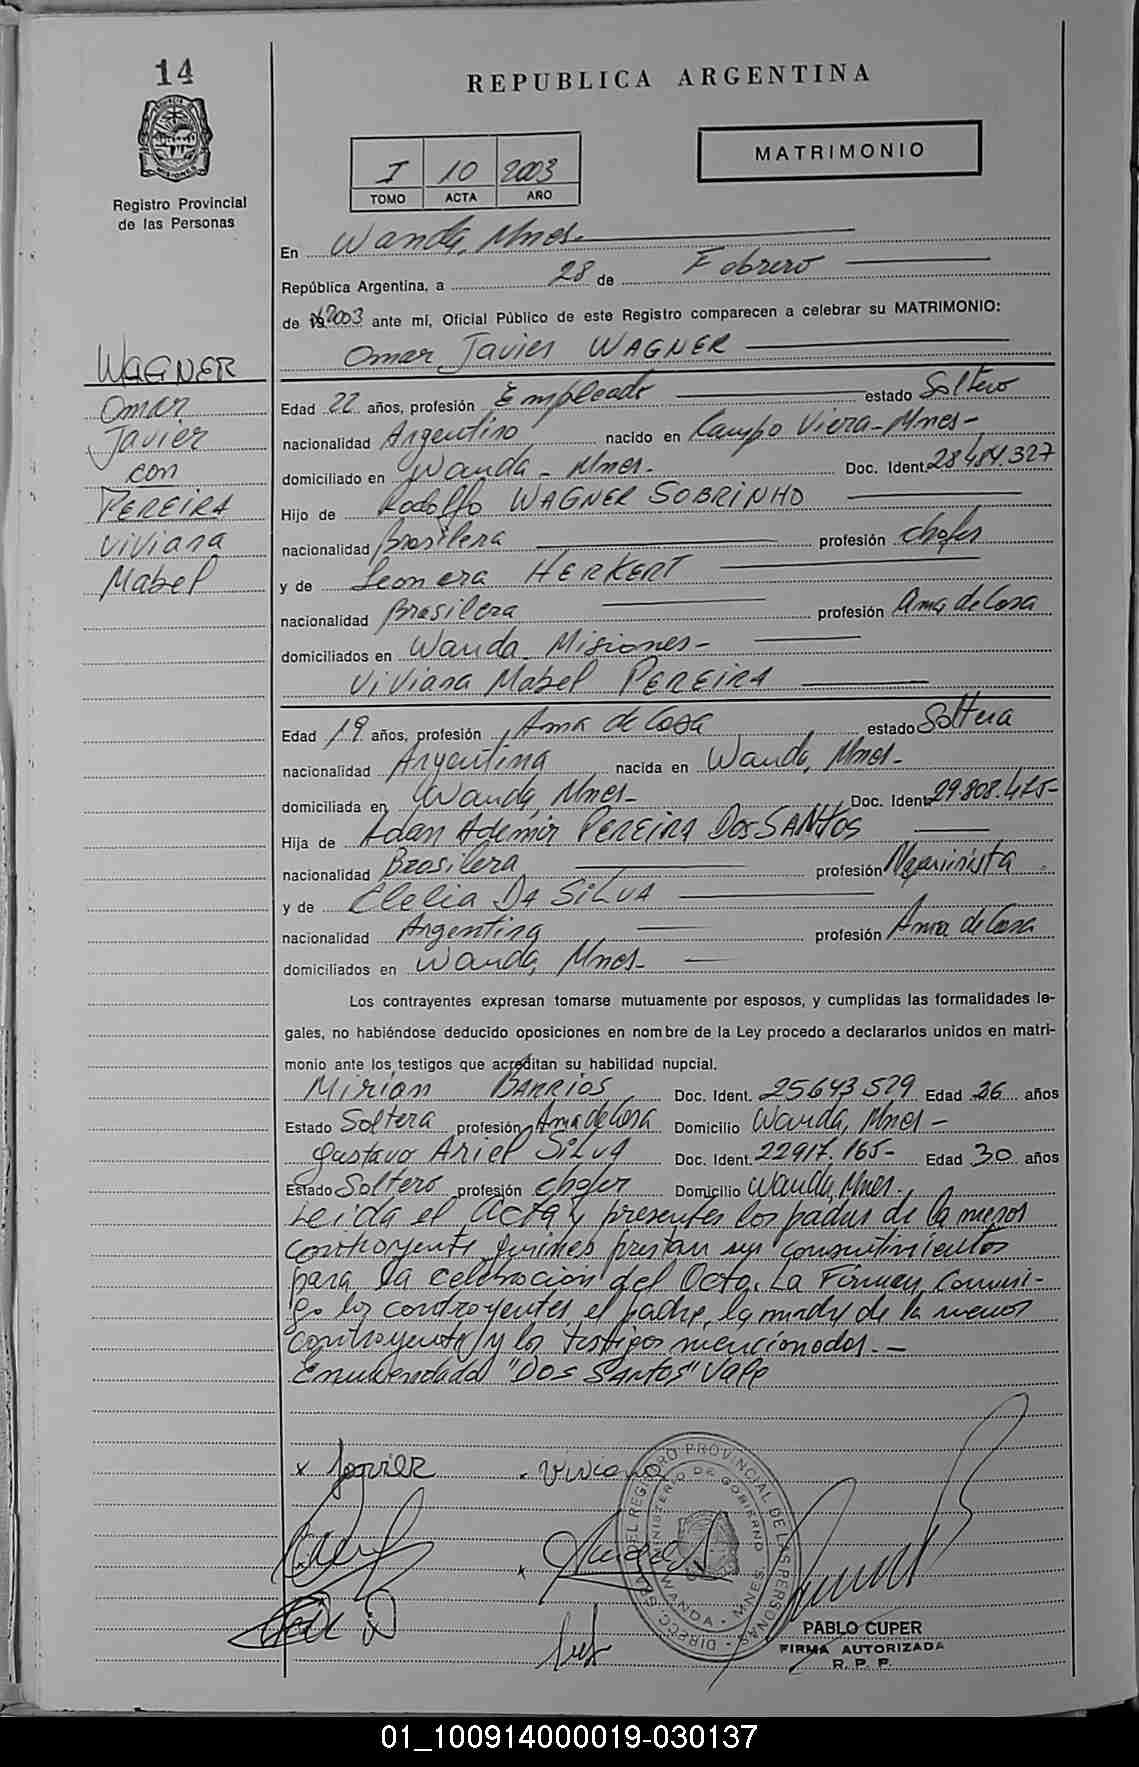 14
REPUBLICA ARGENTINA
MATRIMONIO
I 10 2003
TOMO ACTA AÑO
Registro Provincial
de las Personas
En Wanda, Mnes.
República Argentina, a 28 de Febrero
de 2003 ante mí, Oficial Público de este Registro comparecen a celebrar su MATRIMONIO:
Omar Javier WAGNER
WAGNER
Omar
Javier
con
PEREIRA
Viviana
Mabel
Edad 22 años, profesión Empleado estado Soltero
nacionalidad Argentino nacido en Campo Viera - Mnes -
domiciliado en Wanda - Mnes. Doc. Ident. 28.484.327
Hijo de Rodolfo WAGNER SOBRINHO
nacionalidad Brasilera profesión chofer
y de Leonera HERKERT
nacionalidad Brasilera profesión Ama de Casa
domiciliados en Wanda - Misiones -
Viviana Mabel PEREIRA
Edad 19 años, profesión Ama de Casa estado Soltera
nacionalidad Argentina nacida en Wanda, Mnes -
domiciliada en Wanda, Mnes - Doc. Ident. 29.808.415 -
Hija de Adan Ademir PEREIRA Dos SANTOS
nacionalidad Brasilera profesión Maquinista
y de Clelia DA SILVA
nacionalidad Argentina profesión Ama de Casa
domiciliados en Wanda, Mnes -
Los contrayentes expresan tomarse mutuamente por esposos, y cumplidas las formalidades le-
gales, no habiéndose deducido oposiciones en nombre de la Ley procedo a declararlos unidos en matri-
monio ante los testigos que acreditan su habilidad nupcial.
Mirian BARRIOS Doc. Ident. 25643529 Edad 26 años
Estado Soltera profesión Ama de Casa Domicilio Wanda, Mnes -
Gustavo Ariel Silva Doc. Ident. 22917.165 - Edad 30 años
Estado Soltero profesión chofer Domicilio Wanda, Mnes.
Leida el Acta y presentes los padres de la menor
contrayente quienes prestan sus consentimientos
para la celebración del Acto. La Firman, Conmi-
go los contrayentes, el padre, la madre de la menor
contrayente y los testigos mencionados. -
Enmendado "Dos Santos" Vale
x Javier
Viviana
DIRECC. GRAL. DEL REGISTRO PROVINCIAL DE LAS PERSONAS
MINISTERIO DE GOBIERNO
WANDA - MNES.
PABLO CUPER
FIRMA AUTORIZADA
R. P. P.
01_100914000019-030137